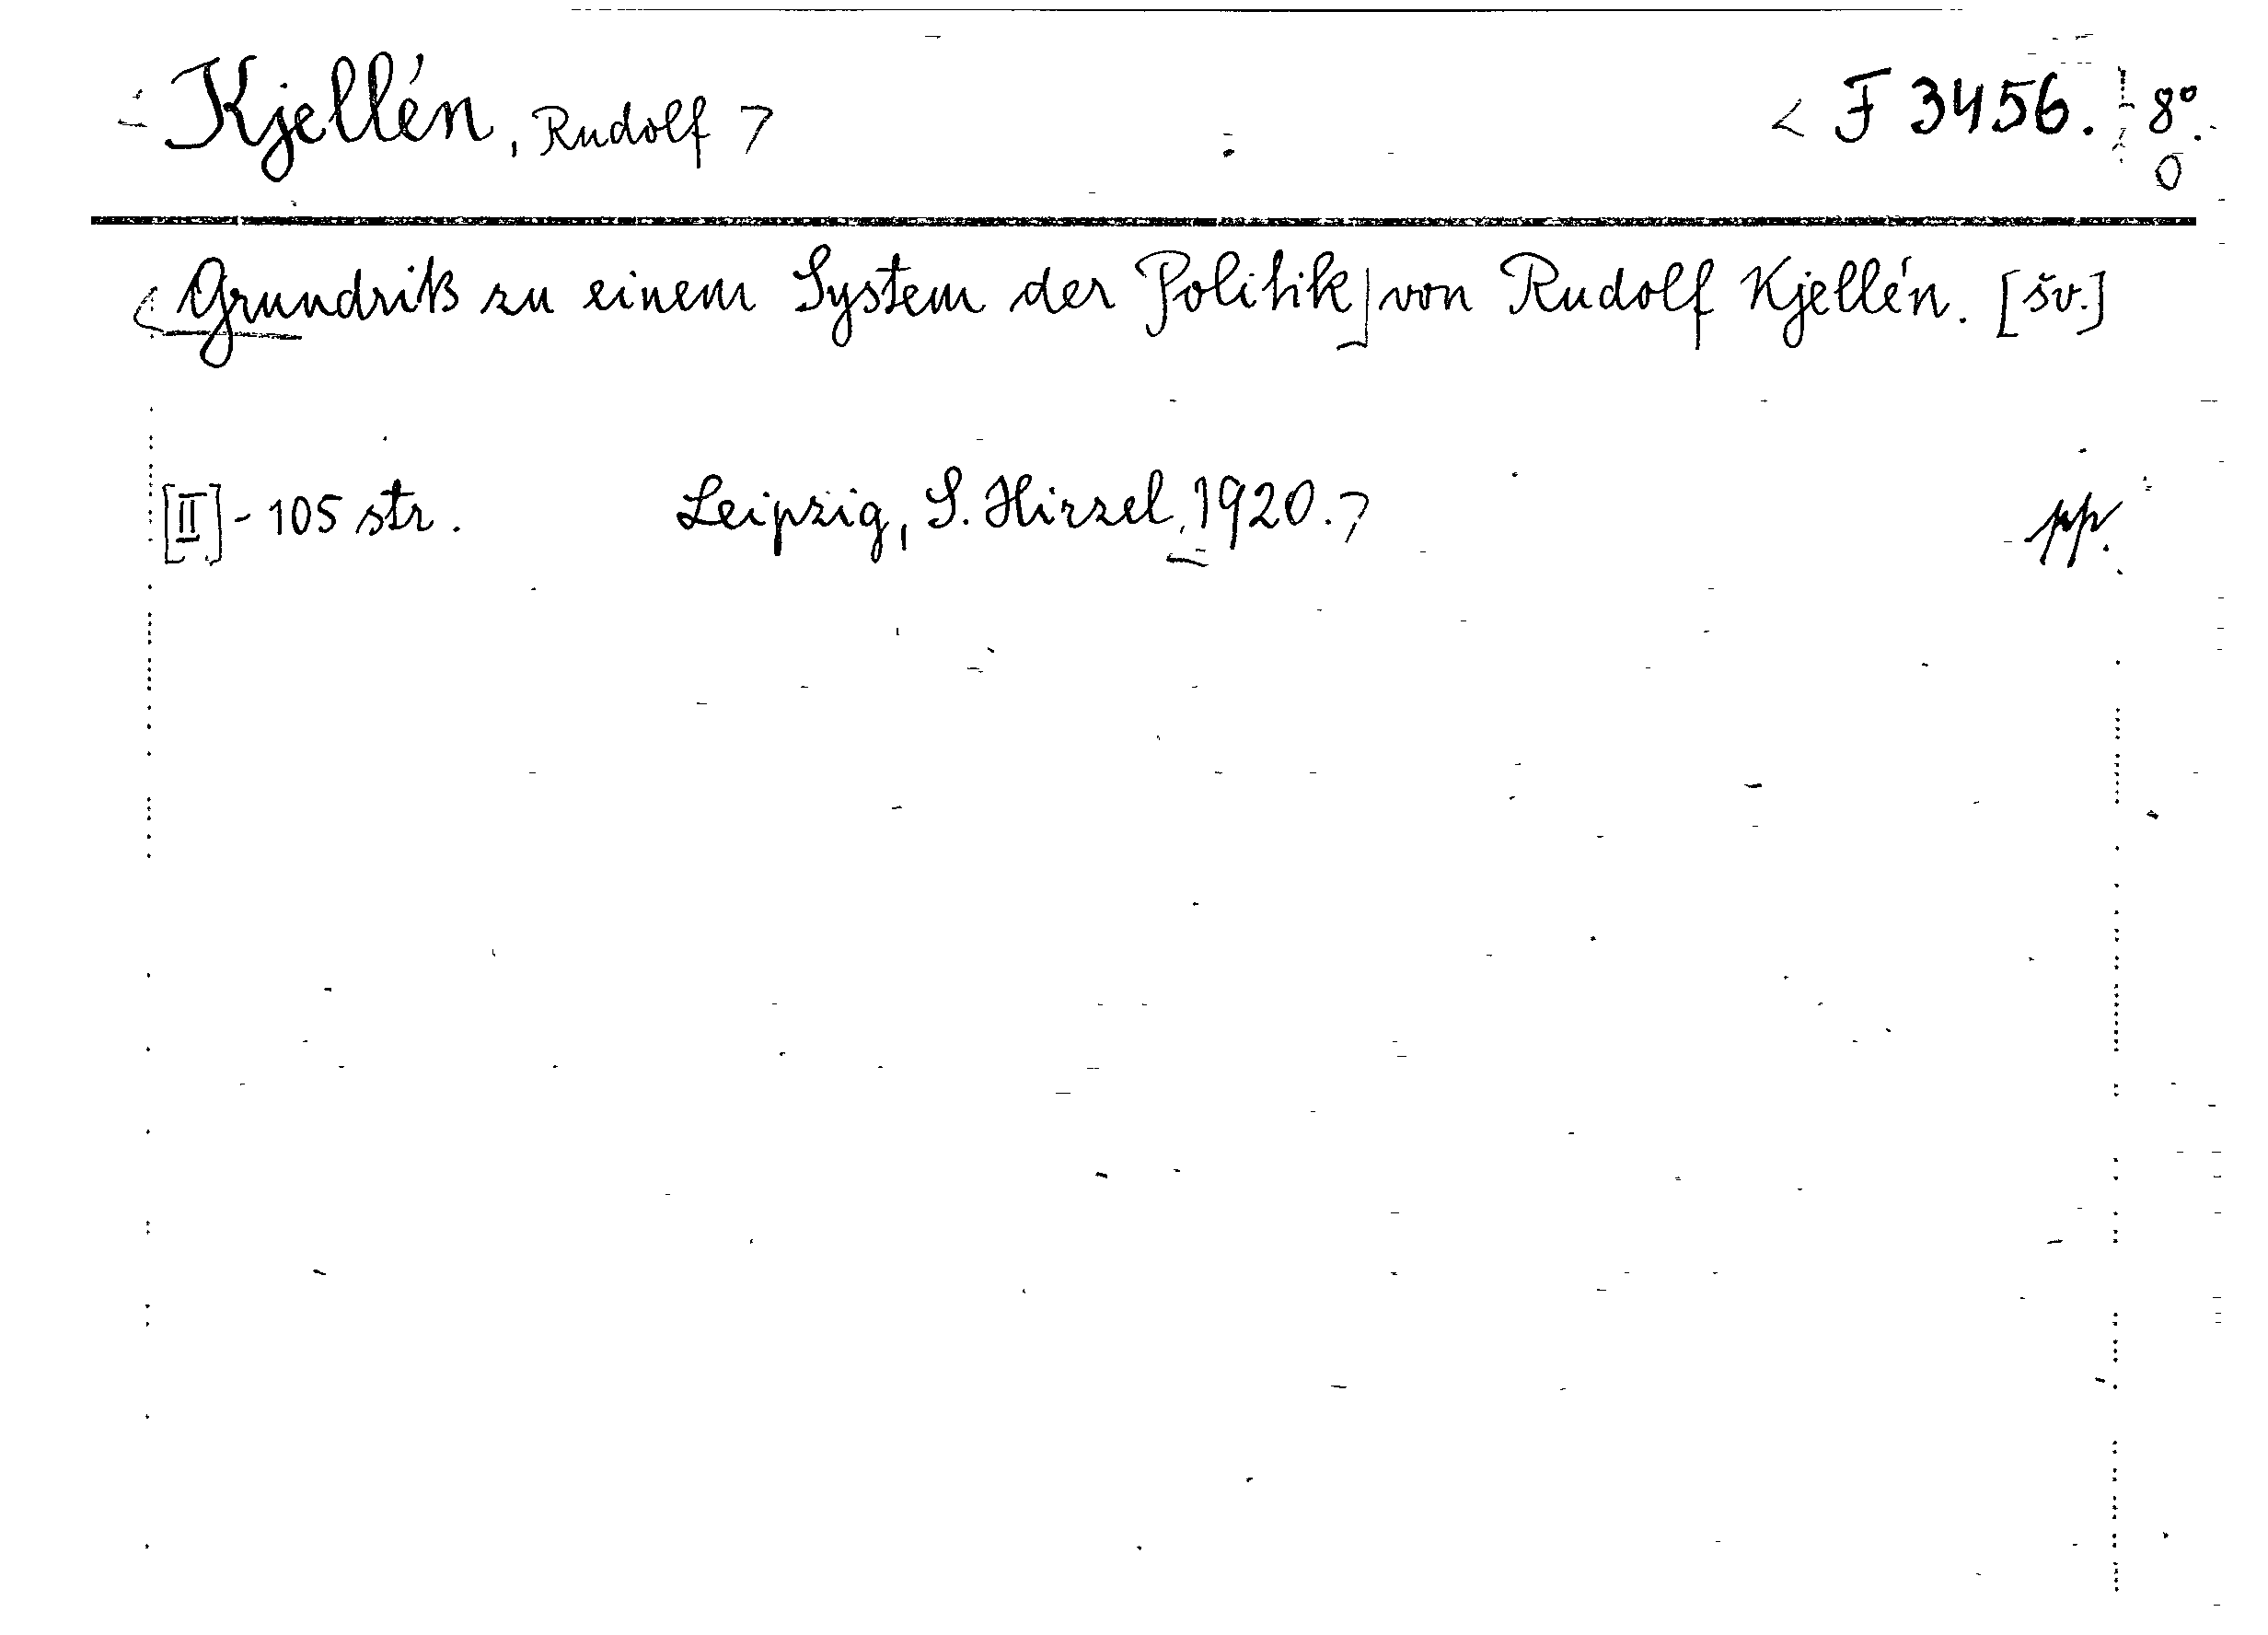 Kjellén, Rudolf F 3456. 8°.
0
Grundriß zu einem System der Politik von Rudolf Kjellén. [šv.]
[II] - 105 str. Leipzig, S. Hirzel, 1920. pp.